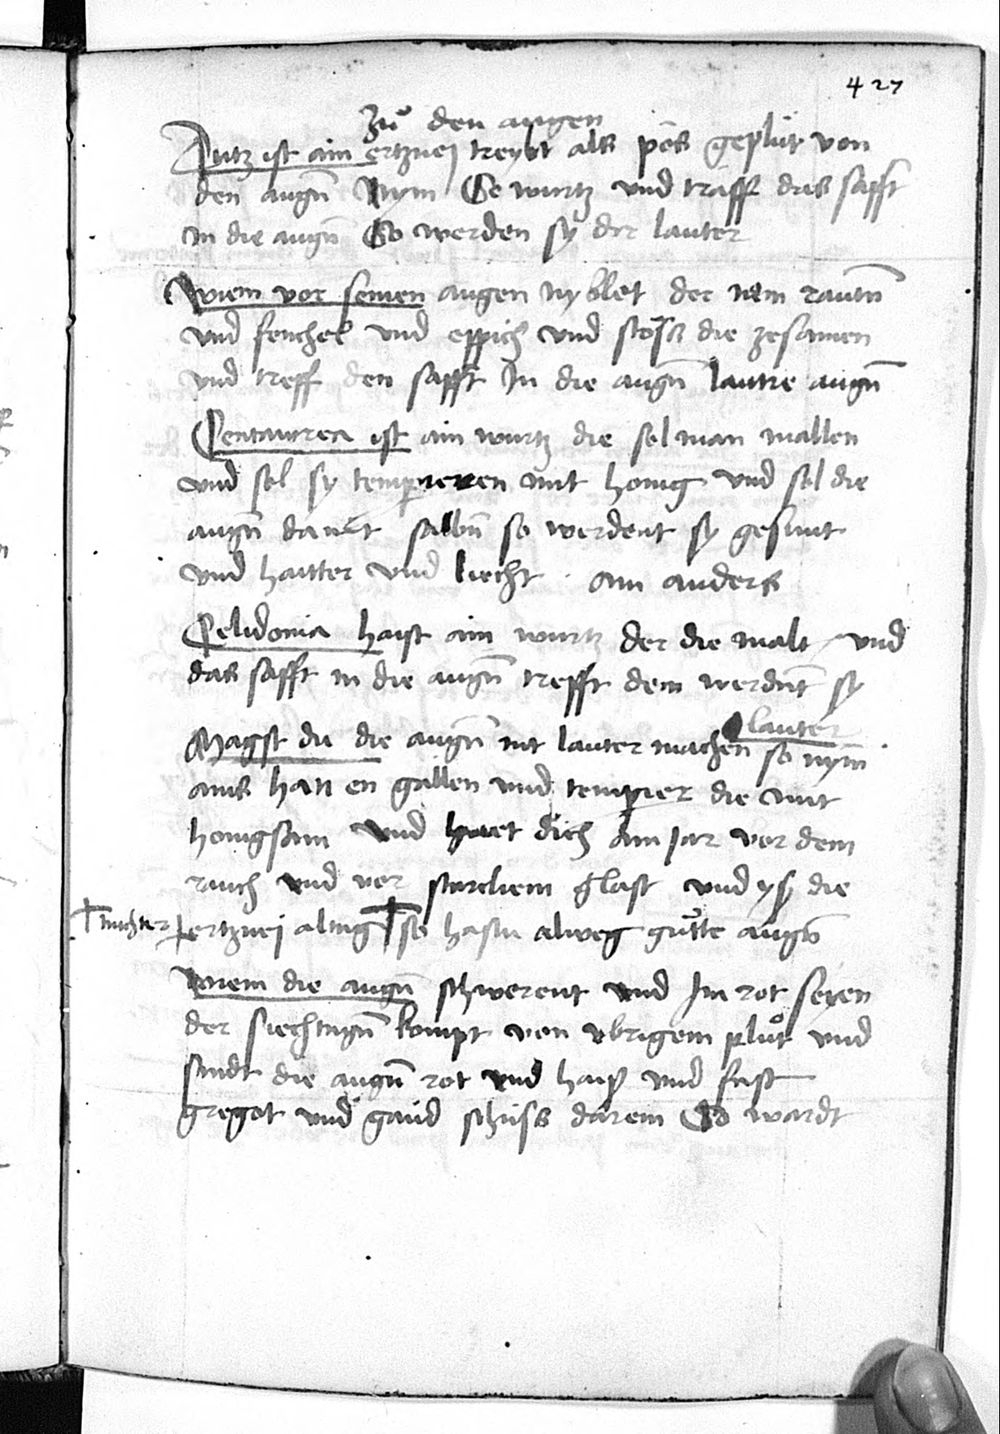 427
Zů den augen
Nutz ist ain ertznej treybt als pös geplüt von
den augn̄ Nym Se wurtz und träff das safft
in die augn̄ So werden sy dir lauter
Wiem vor seinen augen nyblet der nem rautn̄
und fenchel und eppich und stoss die zesamen
und treff den safft In die augn̄ lautre augn̄
Centaurea ist ain wurtz die sol man mallen
und sol sy temperieren mit honig und sol die
augn̄ da mit salbn̄ so werdent sy gesunt
und haitter und liecht . ain anders
Celidonia haist ain wurtz der die malt und
das safft in die augn̄ trefft dem werdn̄t sy
lauter
Magst du die augn̄ nit lauter machen so nym
ains han en gallen und temperier die mit
honigsam und huet dich ain jar vor dem
rauch und vor starckem glast und ys die
† nuchter ertznej alting † so hastu alweg gütte augn̄
Wiem die augn̄ schwerent und Im rot seyen
der siechtugn̄ kompt von ubrigem plůt und
sindt die augn̄ rot und haiß und fast
gregot und gand schuss darein So wardt